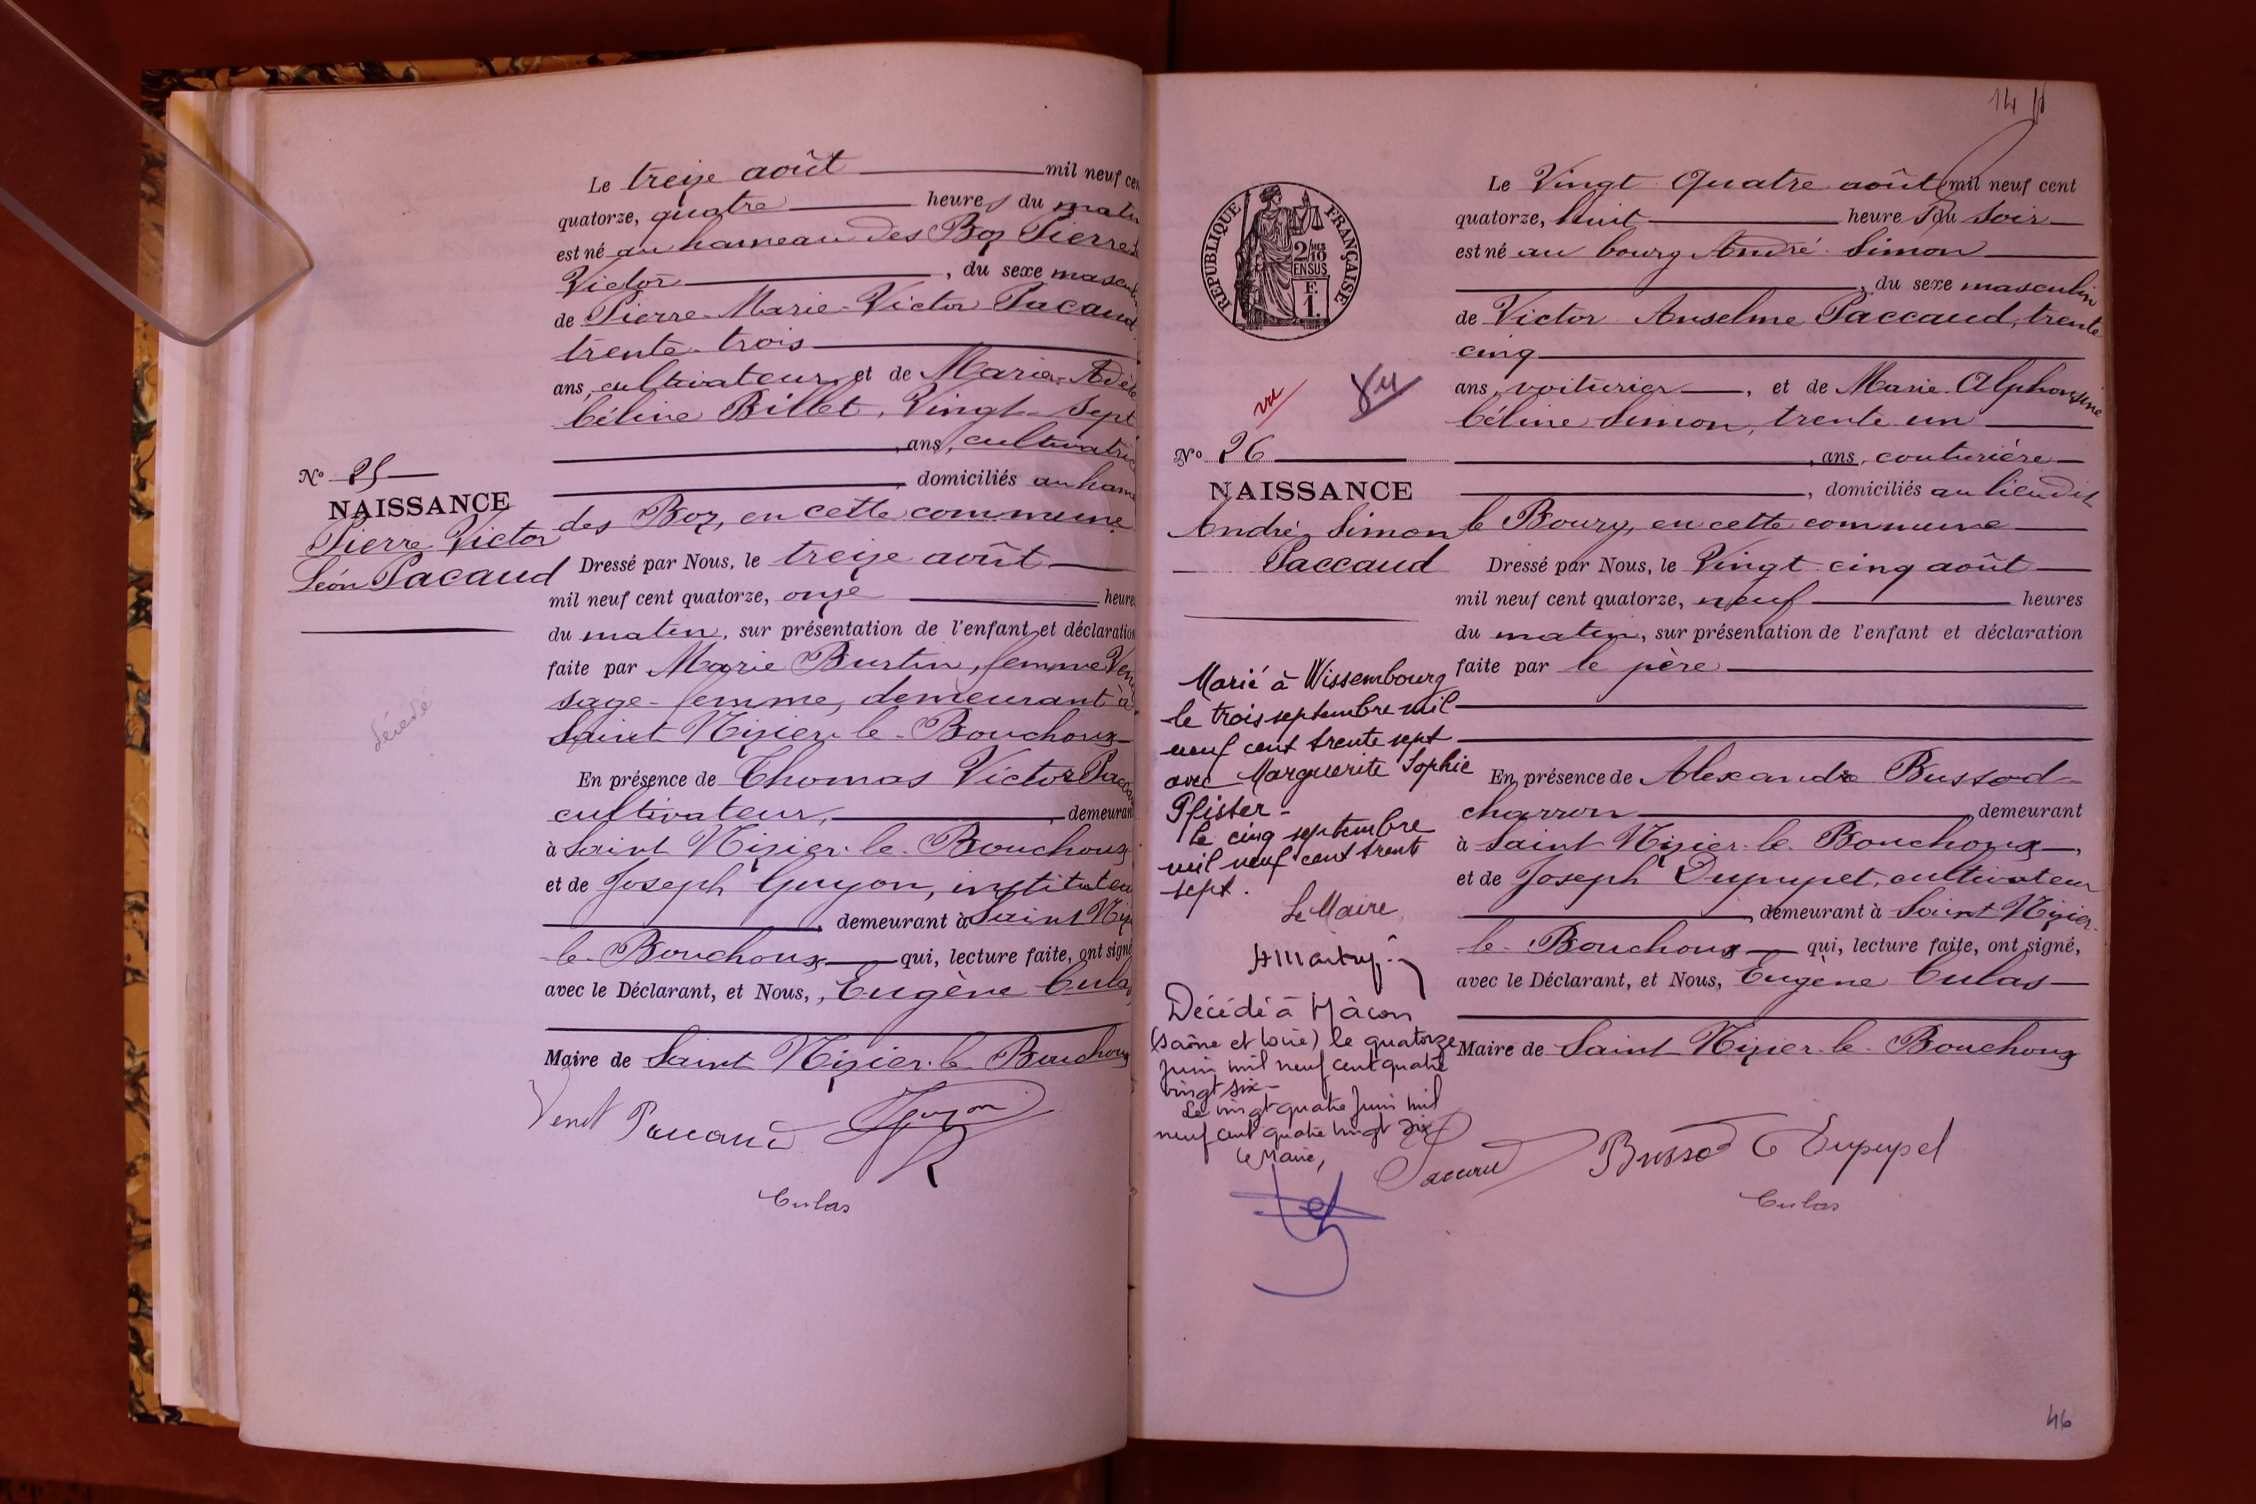 Le treize août mil neuf cen
quatorze, quatre heures du matin
est né au hameau des Boz Pierre
Victor, du sexe masculin
de Pierre-Marie-Victor Pacaud,
trente-trois
ans, cultivateur, et de Marie-Adèle
Céline Billet, Vingt-Sept
ans, cultivatrice
domiciliés au hame
des Boz, en cette commune
Nº 25
NAISSANCE
Pierre Victor
Léon Pacaud
décédé
Dressé par Nous, le treize août
mil neuf cent quatorze, onze heures
du matin, sur présentation de l'enfant et déclaration
faite par Marie Burtin, femme
sage-femme, demeurant à
Saint Nizier-le-Bouchoux
En présence de Thomas Victor
cultivateur, demeurant
à Saint Nizier-le-Bouchoux
et de Joseph Guyon, instituteu
demeurant à Saint Nizi
le-Bouchoux qui, lecture faite, ont signé
avec le Déclarant, et Nous, Eugène Culas,
Maire de Saint Nizier-le Bouchoux
Pacaud Guyon
Culas
14
REPUBLIQUE FRANÇAISE
2/10 EN SUS
F.
1.
vu
Nº 26
NAISSANCE
André Simon
Paccaud
Marié à Wissembourg
le trois septembre mil
neuf cent trente sept
avec Marguerite Sophie
Pfister-
Le cinq septembre
mil neuf cent trente
sept.
Le Maire
Décédé à Mâcon
(Saône et Loire) le quatorze
Juin mil neuf cent quatre
vingt six-
Le vingt quatre Juin mil
neuf cent quatre vingt six
Le Maire,
Le Vingt Quatre août mil neuf cent
quatorze, huit heures du soir
est né au bourg André Simon
, du sexe masculin
de Victor Anselme Paccaud, trente
cinq
ans, voiturier, et de Marie Alphonsine
Céline Simon, trente un
, ans, couturière
, domiciliés au lieu dit
le Bourg, en cette commune
Dressé par Nous, le Vingt-cinq août
mil neuf cent quatorze, neuf heures
du matin, sur présentation de l'enfant et déclaration
faite par le père
En présence de Alexandre Bussod
charron demeurant
à Saint Nizier-le-Bouchoux,
et de Joseph Dupupet, cultivateur
, demeurant à Saint Nizier-
le-Bouchoux qui, lecture faite, ont signé,
avec le Déclarant, et Nous, Eugène Culas
Maire de Saint Nizier-le-Bouchoux
Paccaud Bussod Dupupet
Culas
46